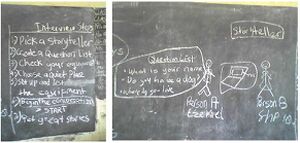 Interview Steps
1) Pick a Storyteller
2) Create a Question List
3) Check your equipment
4) Choose a quiet Place
5) Set up and test
the equipment
6) Begin the conversation
START
7) Put great stories
Storyteller
Question List
• What is your name
• Do you have a dog?
• Where do you live
Person A
Person B